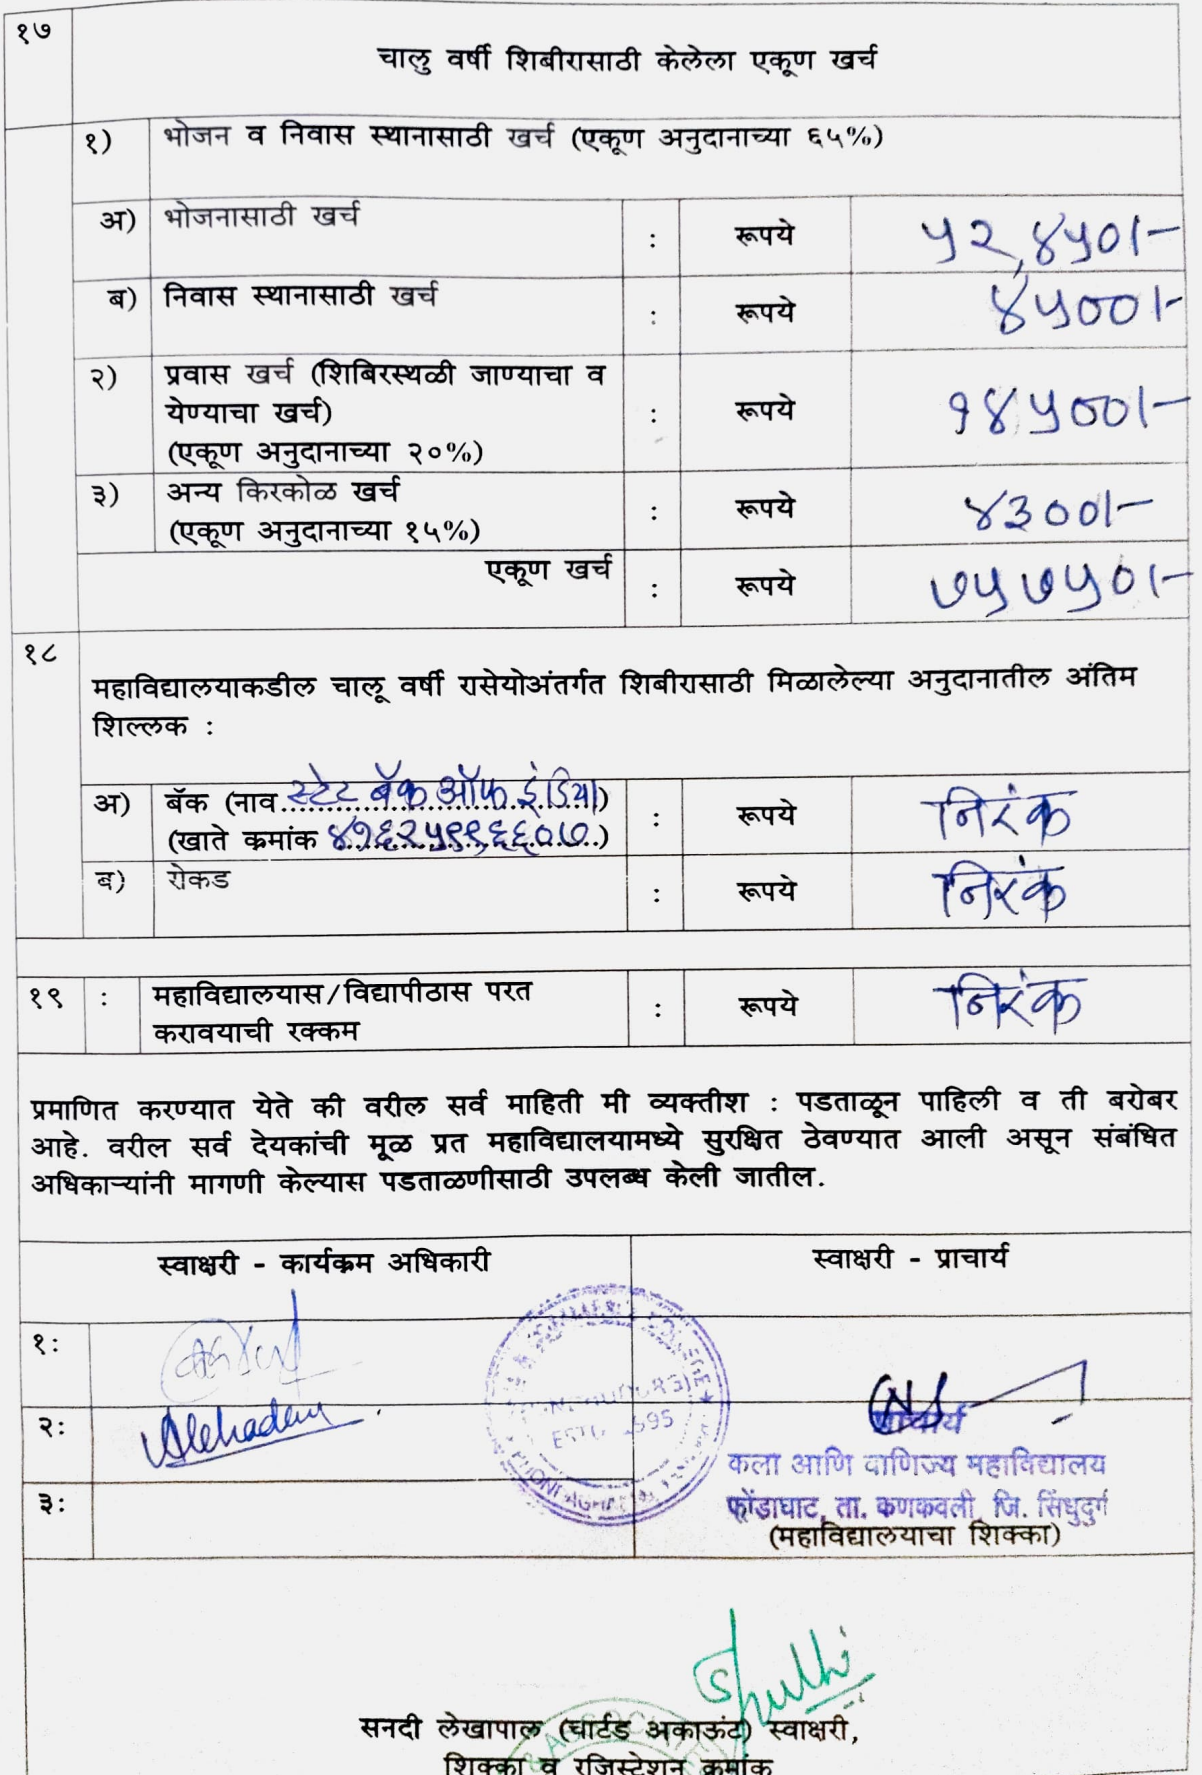 १७
चालु वर्षी शिबीरासाठी केलेला एकूण खर्च
१) भोजन व निवास स्थानासाठी खर्च (एकूण अनुदानाच्या ६५%)
अ) भोजनासाठी खर्च : रूपये ५२,४५०/-
ब) निवास स्थानासाठी खर्च : रूपये ४५००/-
२) प्रवास खर्च (शिबिरस्थळी जाण्याचा व
येण्याचा खर्च) : रूपये १४५००/-
(एकूण अनुदानाच्या २०%)
३) अन्य किरकोळ खर्च : रूपये ४३००/-
(एकूण अनुदानाच्या १५%)
एकूण खर्च : रूपये ७५७५०/-
१८
महाविद्यालयाकडील चालू वर्षी रासेयोअंतर्गत शिबीरासाठी मिळालेल्या अनुदानातील अंतिम
शिल्लक :
अ) बॅक (नाव स्टेट बॅक ऑफ इंडिया) : रूपये निरंक
(खाते क्रमांक ४१६२५९९६६०७)
ब) रोकड : रूपये निरंक
१९ : महाविद्यालयास/विद्यापीठास परत : रूपये निरंक
करावयाची रक्कम
प्रमाणित करण्यात येते की वरील सर्व माहिती मी व्यक्तीश : पडताळून पाहिली व ती बरोबर
आहे. वरील सर्व देयकांची मूळ प्रत महाविद्यालयामध्ये सुरक्षित ठेवण्यात आली असून संबंधित
अधिकाऱ्यांनी मागणी केल्यास पडताळणीसाठी उपलब्ध केली जातील.
स्वाक्षरी - कार्यक्रम अधिकारी
स्वाक्षरी - प्राचार्य
१:
२:
३:
COLLEGE
ESTD
प्राचार्य
कला आणि वाणिज्य महाविद्यालय
फोंडाघाट, ता. कणकवली, जि. सिंधुदुर्ग
(महाविद्यालयाचा शिक्का)
सनदी लेखापाल (चार्टड अकाऊंट) स्वाक्षरी,
शिक्का व रजिस्टेशन क्रमांक